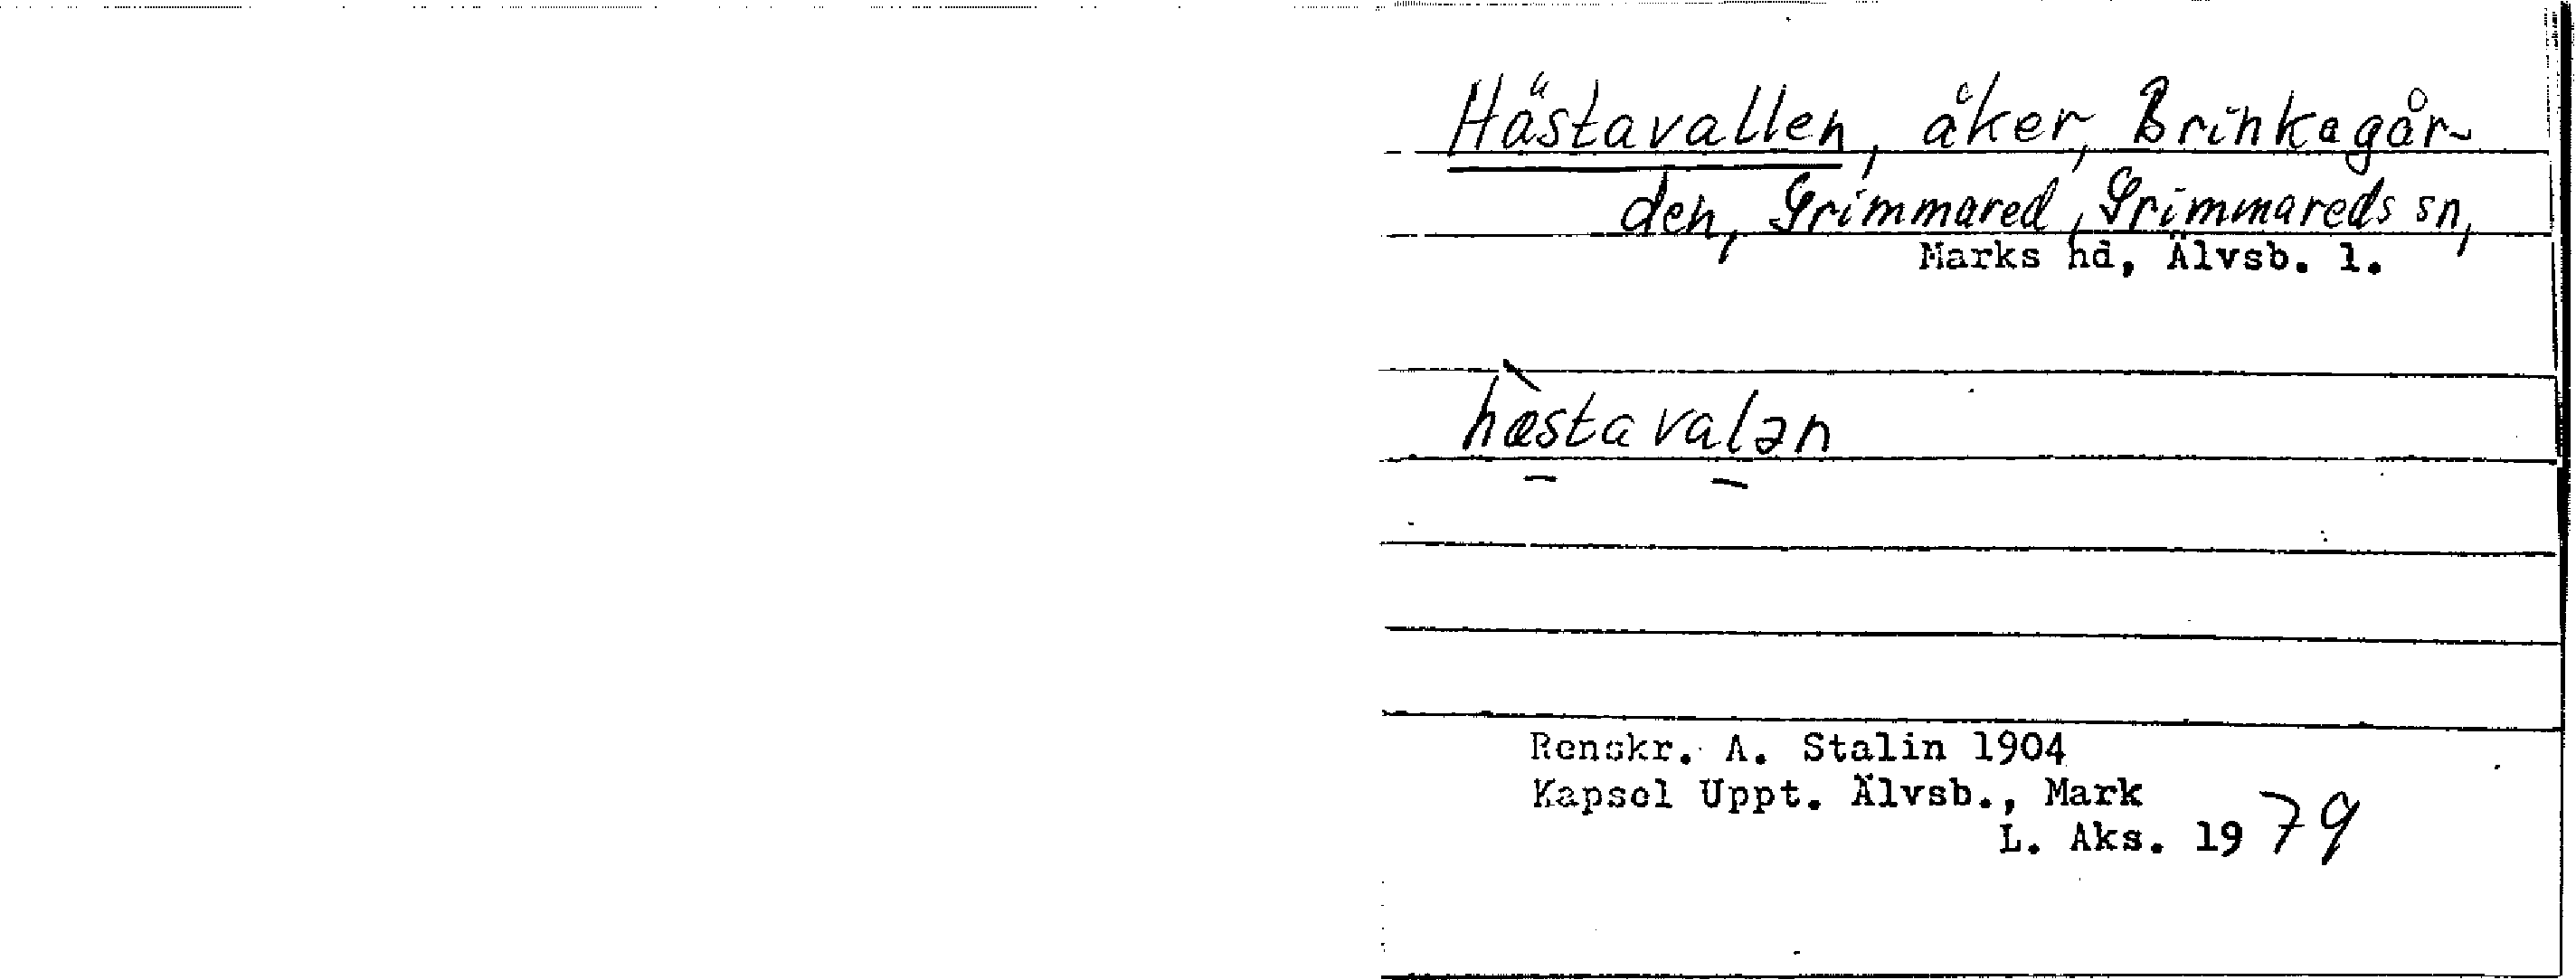 Hästavallen, åker, Brinkagår-
den, Grimmared, Grimmareds sn,
Marks hd, Älvsb. l.
hæ̀stavalən
Renskr. A. Stalin 1904
Kapsel Uppt. Älvsb., Mark
L. Aks. 1979